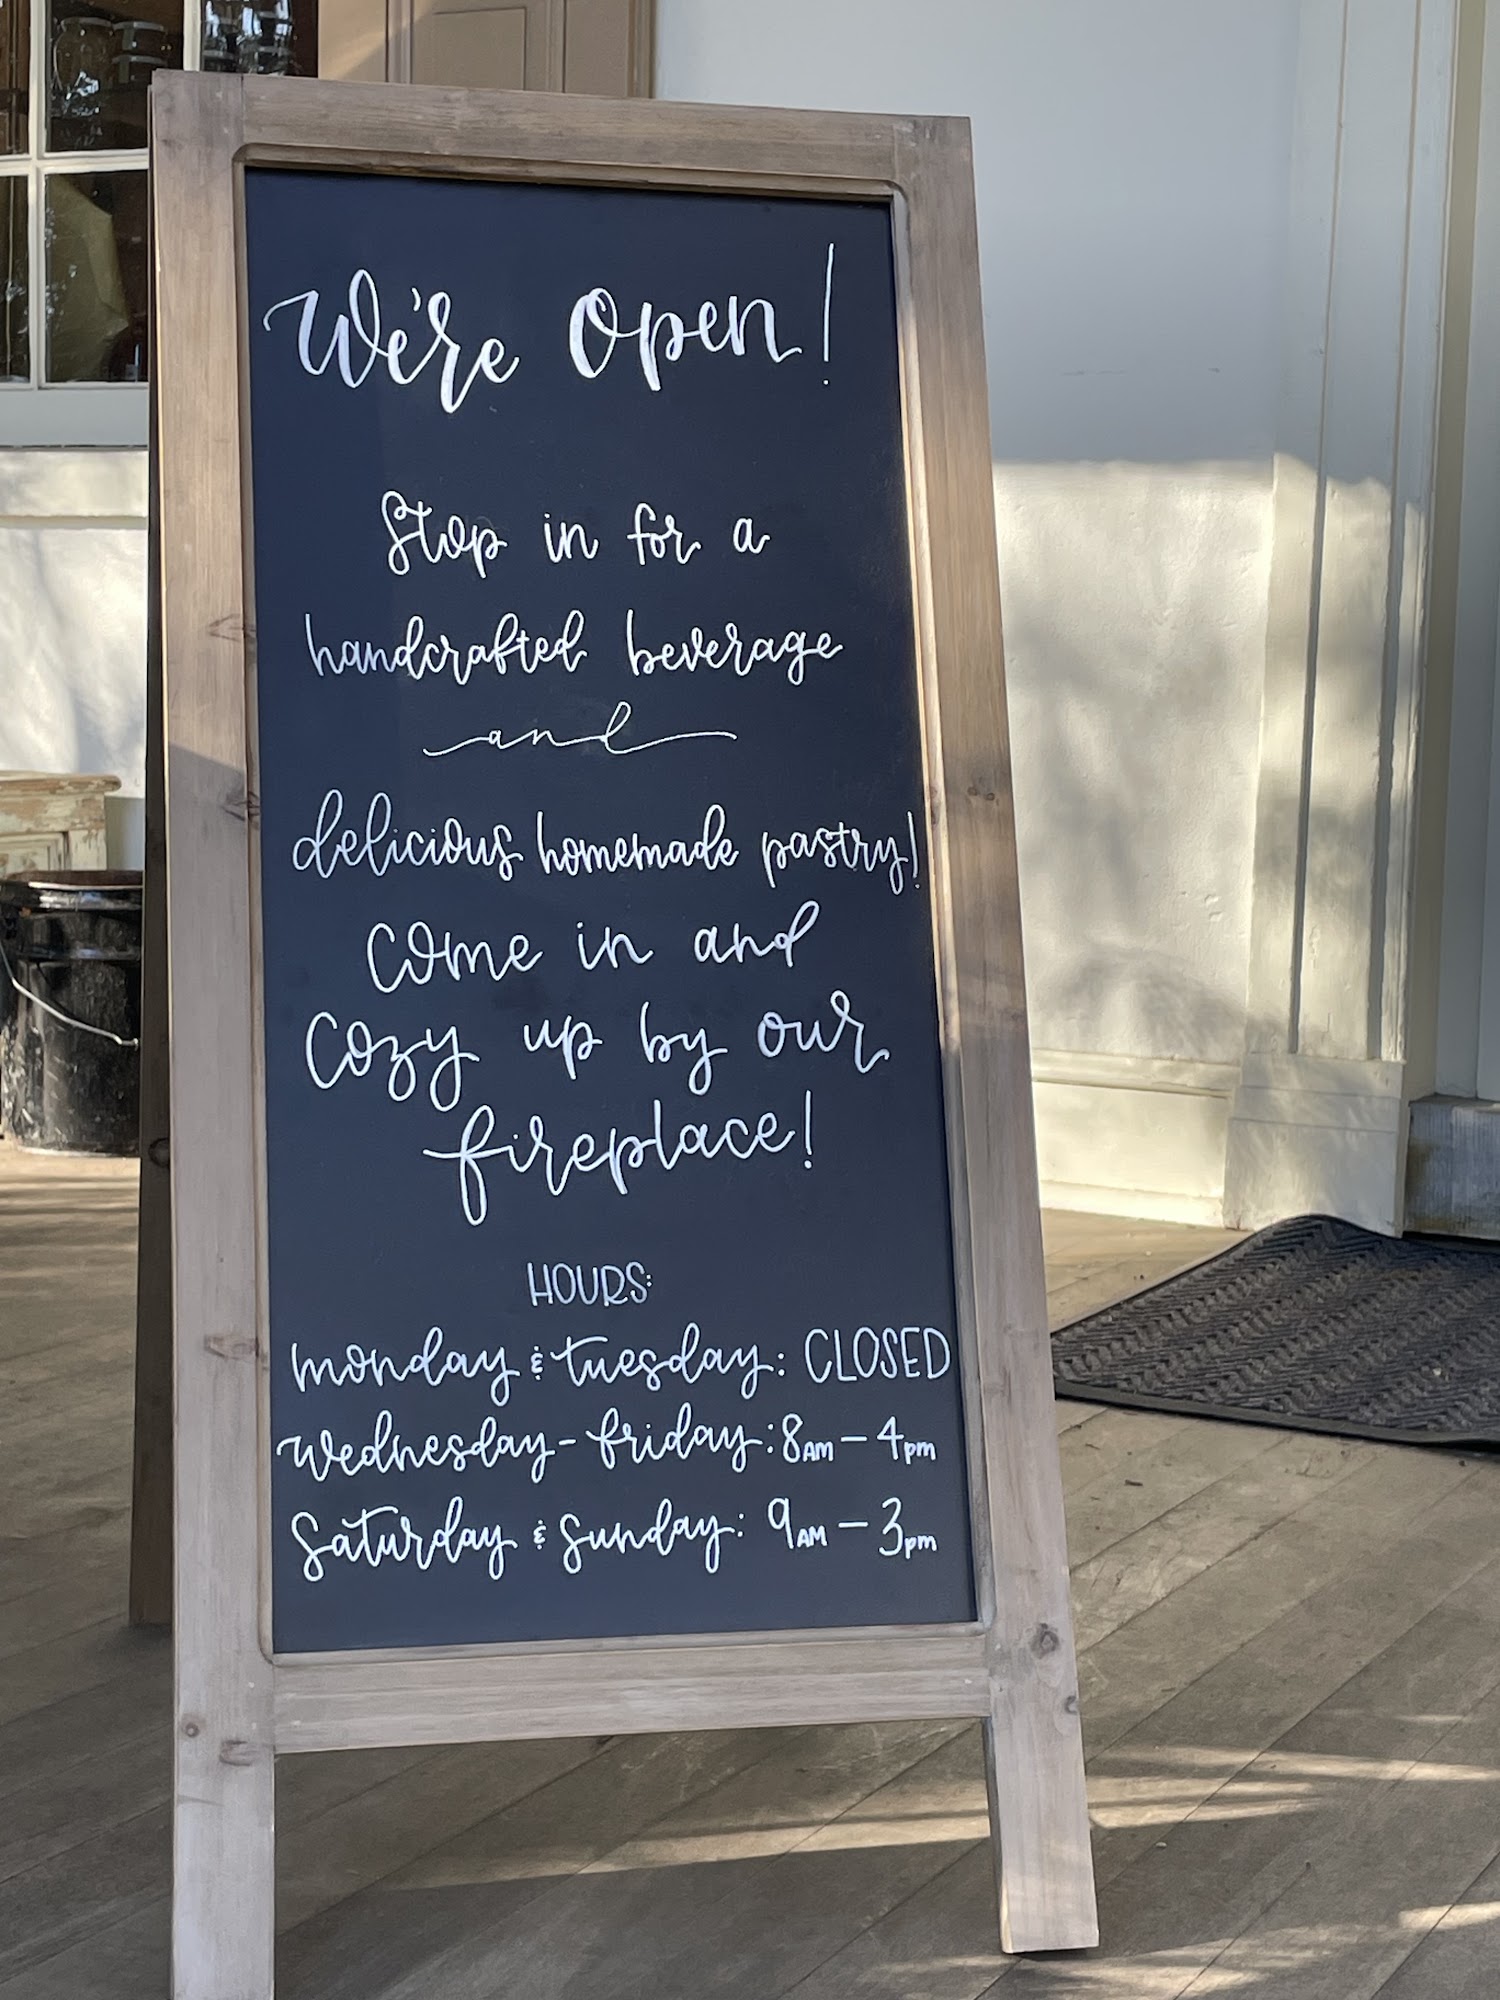 We're Open!
Stop in for a
handcrafted beverage
and
delicious homemade pastry!
Come in and
Cozy up by our
fireplace!
HOURS:
monday & tuesday: CLOSED
Wednesday - friday: 8AM - 4pm
Saturday & Sunday: 9AM - 3pm